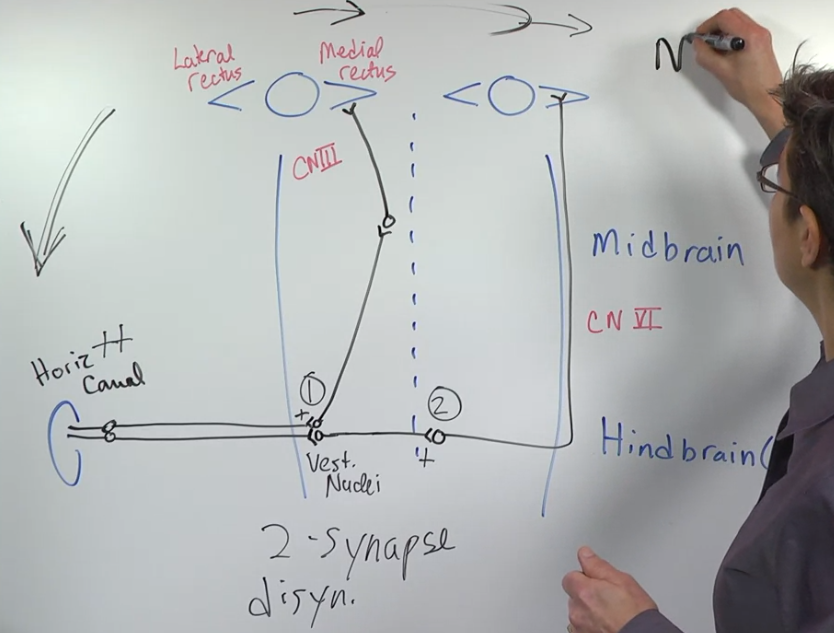 Lateral
rectus
Medial
rectus
N
CN III
Midbrain
CN VI
Horiz
Canal
+
1
2
+
Vest.
Nuclei
Hindbrain(
2-synapse
disyn.